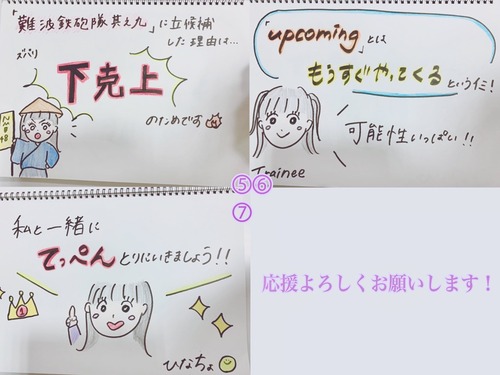 「難波鉄砲隊其之九」に立候補
した理由は…
ズバリ
下剋上
のためです
NMB48
「upcoming」とは
もうすぐやってくる
というイミ!
可能性いっぱい!!
Trainee
⑤⑥
⑦
私と一緒に
てっぺんとりにいきましょう!!
1
ひなちょ
応援よろしくお願いします!